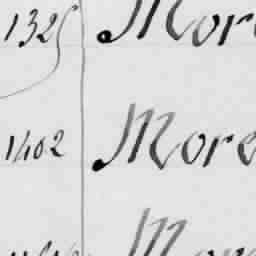 1325 More
1402 More